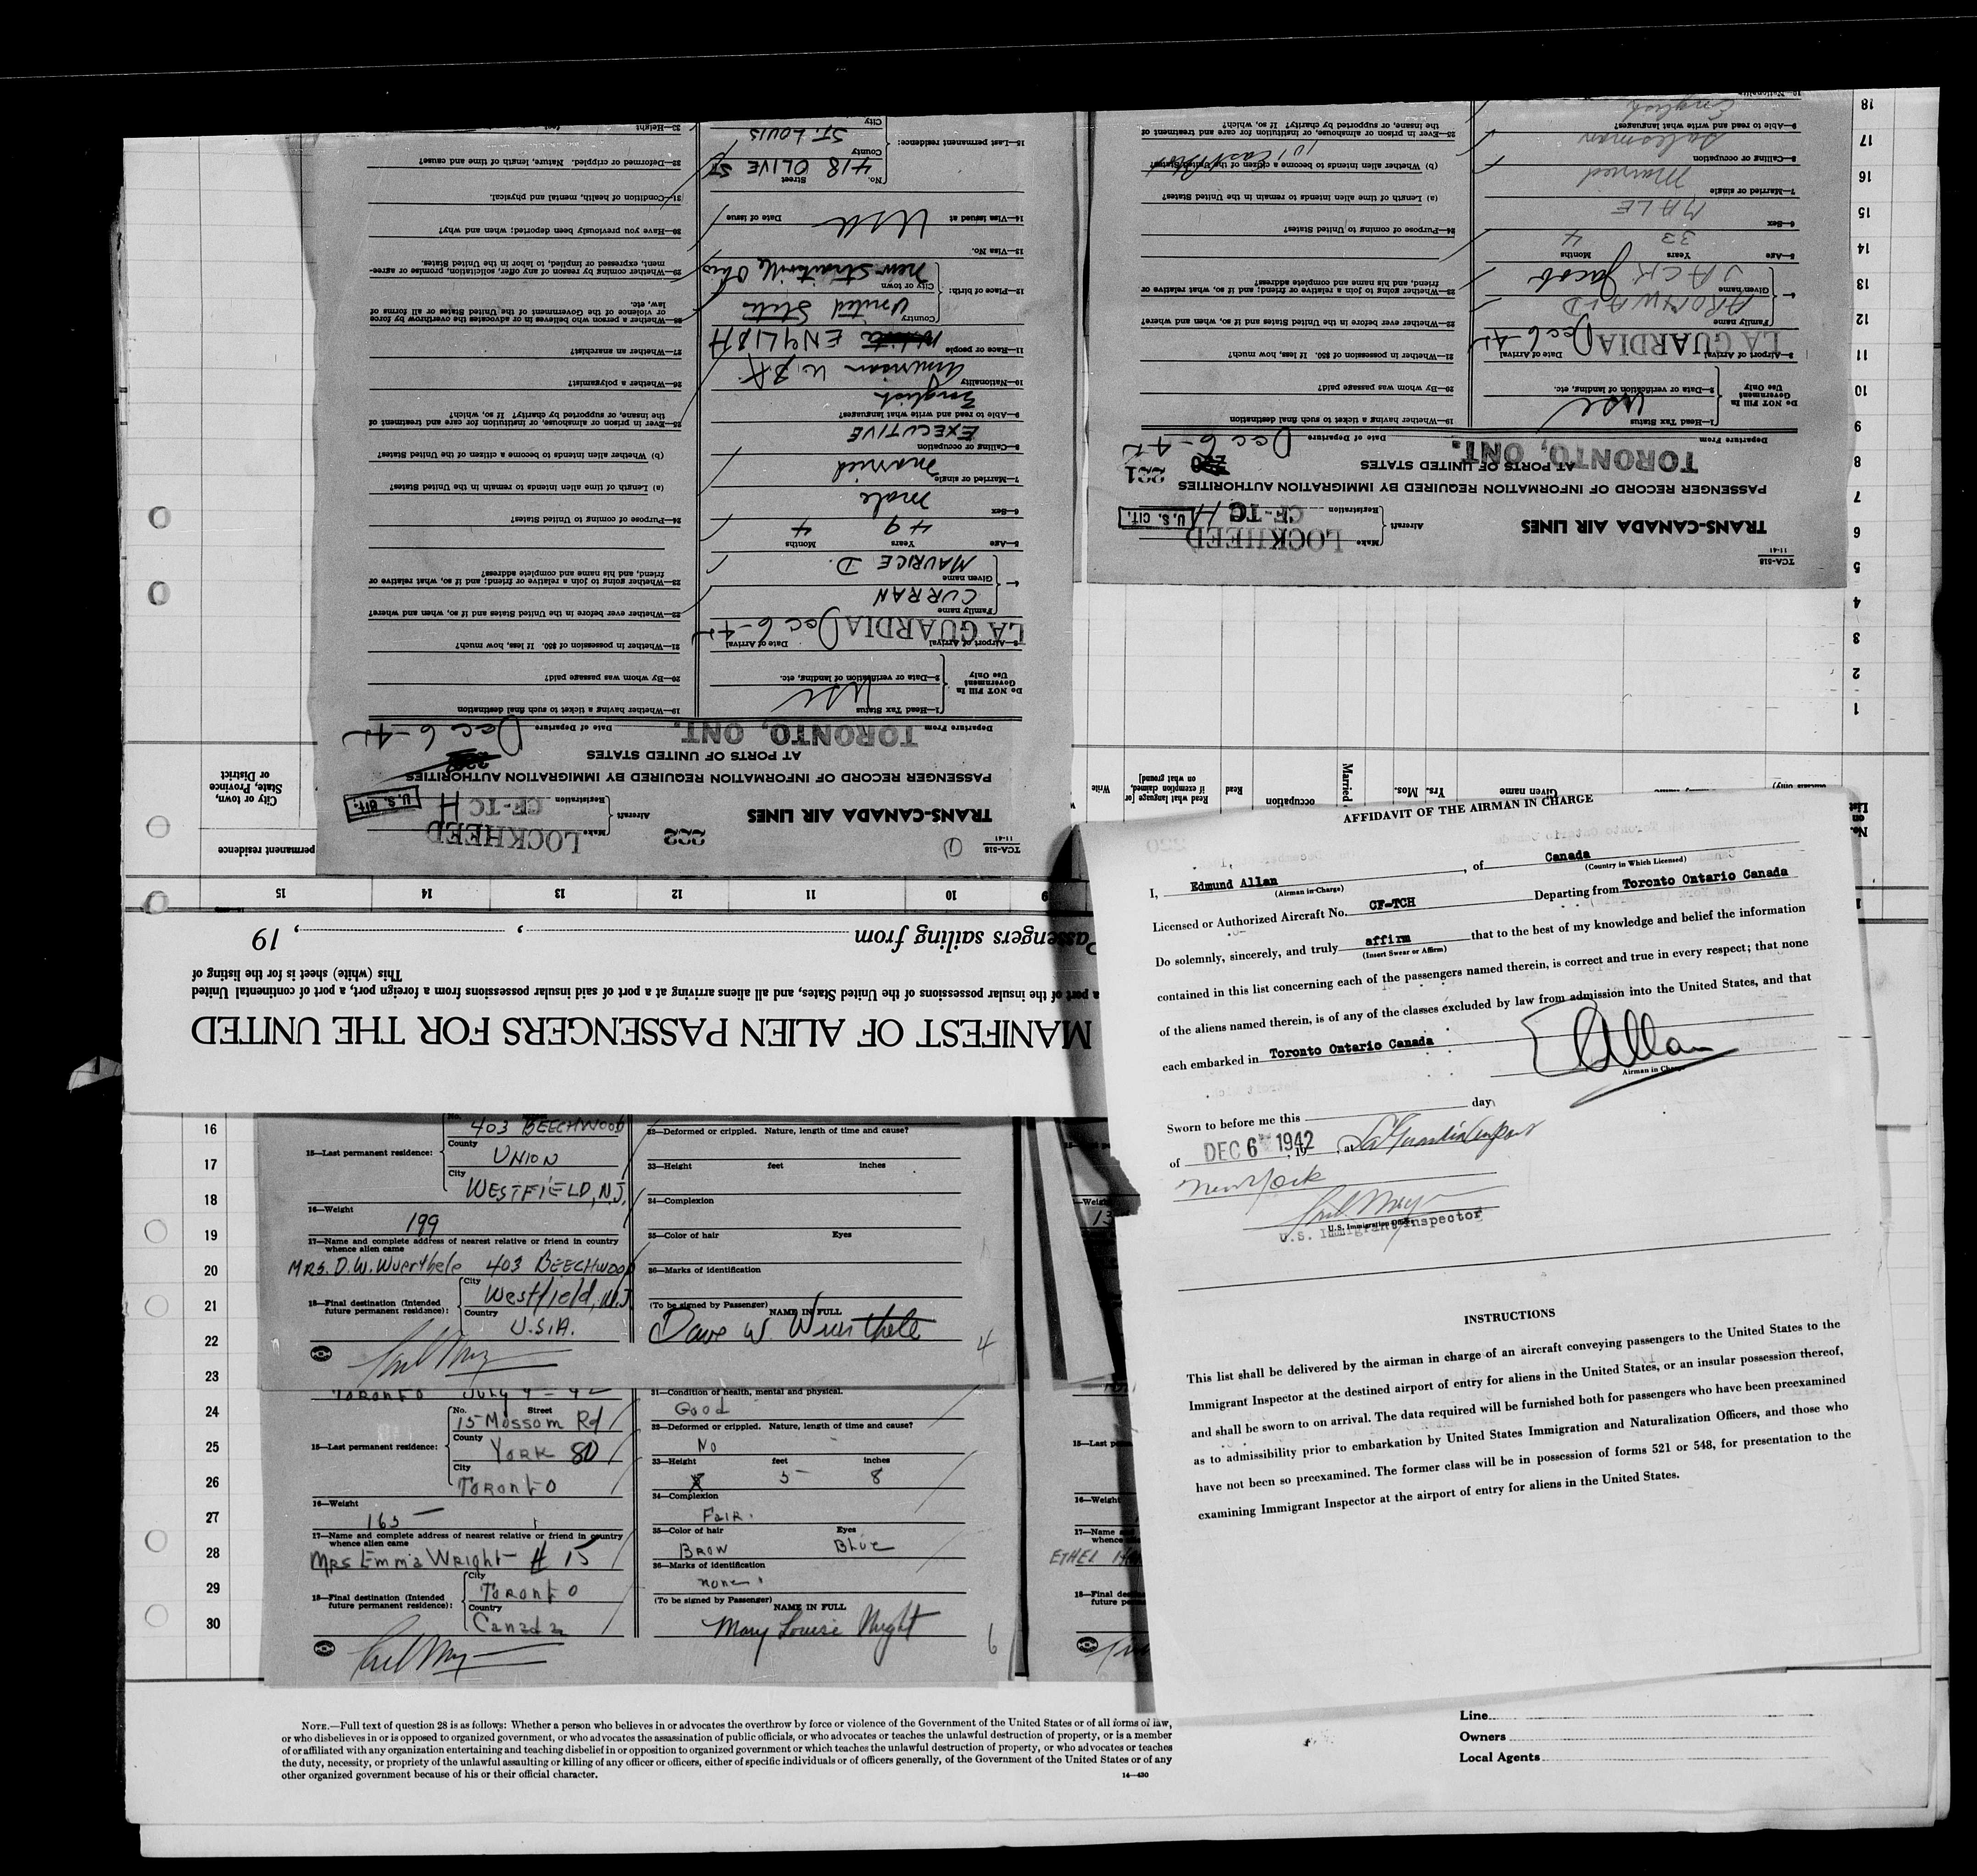 TCA-518
11-41
TRANS-CANADA AIR LINES
Aircraft
Make LOCKHEED
Registration CF-TC H
U.S. CIT.
222
PASSENGER RECORD OF INFORMATION REQUIRED BY IMMIGRATION AUTHORITIES
AT PORTS OF UNITED STATES
Departure From TORONTO, ONT. Date of Departure Dec 6-42
Do NOT Fill In
Government
Use Only
1—Head Tax Status USC
2—Data or verification of landing, etc.
3—Airport of Arrival LA GUARDIA Date of Arrival Dec 6-42
Family name CURRAN
Given name MAURICE D.
5—Age Years 49 Months 4
6—Sex male
7—Married or single married
8—Calling or occupation EXECUTIVE
9—Able to read and write what languages? English
10—Nationality American U.S.A.
11—Race or people ENGLISH
12—Place of birth: Country United States
City or town New Straitsville Ohio
13—Visa No.
14—Visa issued at USA Date of issue
15—Last permanent residence:
No. Street 418 OLIVE ST
County
ST. LOUIS
City
19—Whether having a ticket to such final destination
20—By whom was passage paid?
21—Whether in possession of $50. If less, how much?
22—Whether ever before in the United States and if so, when and where?
23—Whether going to join a relative or friend; and if so, what relative or
friend, and his name and complete address?
24—Purpose of coming to United States?
(a) Length of time alien intends to remain in the United States?
(b) Whether alien intends to become a citizen of the United States?
25—Ever in prison or almshouse, or institution for care and treatment of
the insane, or supported by charity? If so, which?
26—Whether a polygamist?
27—Whether an anarchist?
28—Whether a person who believes in or advocates the overthrow by force
or violence of the Government of the United States or all forms of
law, etc.
29—Whether coming by reason of any offer, solicitation, promise or agree-
ment, expressed or implied, to labor in the United States.
30—Have you previously been deported; when and why?
31—Condition of health, mental and physical.
32—Deformed or crippled. Nature, length of time and cause?
33—Height feet
TCA-518
11-41
TRANS-CANADA AIR LINES
Aircraft
Make LOCKHEED
Registration CF-TC H
U.S. CIT.
PASSENGER RECORD OF INFORMATION REQUIRED BY IMMIGRATION AUTHORITIES
AT PORTS OF UNITED STATES
221
Departure From TORONTO, ONT. Date of Departure Dec 6-42
Do NOT Fill In
Government
Use Only
1—Head Tax Status USC
2—Data or verification of landing, etc.
3—Airport of Arrival LA GUARDIA Date of Arrival Dec 6-42
Family name
Given name JACK Jacob
5—Age Years 33 Months 4
6—Sex MALE
7—Married or single Married
8—Calling or occupation Salesman
9—Able to read and write what languages? English
19—Whether having a ticket to such final destination
20—By whom was passage paid?
21—Whether in possession of $50. If less, how much?
22—Whether ever before in the United States and if so, when and where?
23—Whether going to join a relative or friend; and if so, what relative or
friend, and his name and complete address?
24—Purpose of coming to United States?
(a) Length of time alien intends to remain in the United States?
(b) Whether alien intends to become a citizen of the United States?
25—Ever in prison or almshouse, or institution for care and treatment of
the insane, or supported by charity? If so, which?
1
2
3
4
5
6
7
8
9
10
11
12
13
14
15
16
17
18
MANIFEST OF ALIEN PASSENGERS FOR THE UNITED
a port of the insular possessions of the United States, and all aliens arriving at a port of said insular possessions from a foreign port, a port of continental United
This (white) sheet is for the listing of
Passengers sailing from , , 19
9 10 11 12 13 14 15
No.
on
List
Given name
Yrs. Mos.
Married
occupation
Read
Read what language [or
if exemption claimed,
on what ground]
Write
permanent residence
City or town,
State, Province
or District
AFFIDAVIT OF THE AIRMAN IN CHARGE
I, Edmund Allan , of Canada
(Airman in Charge) (Country in Which Licensed)
Licensed or Authorized Aircraft No. CF-TCH Departing from Toronto Ontario Canada
Do solemnly, sincerely, and truly affirm that to the best of my knowledge and belief the information
(Insert Swear or Affirm)
contained in this list concerning each of the passengers named therein, is correct and true in every respect; that none
of the aliens named therein, is of any of the classes excluded by law from admission into the United States, and that
each embarked in Toronto Ontario Canada
E Allan
Airman in Charge
Sworn to before me this day
of DEC 6 1942, 19 , at La Guardia Airport
New York
U.S. Immigration Officer
U.S. Immigrant Inspector
INSTRUCTIONS
This list shall be delivered by the airman in charge of an aircraft conveying passengers to the United States to the
Immigrant Inspector at the destined airport of entry for aliens in the United States, or an insular possession thereof,
and shall be sworn to on arrival. The data required will be furnished both for passengers who have been preexamined
as to admissibility prior to embarkation by United States Immigration and Naturalization Officers, and those who
have not been so preexamined. The former class will be in possession of forms 521 or 548, for presentation to the
examining Immigrant Inspector at the airport of entry for aliens in the United States.
16
17
18
19
20
21
22
23
24
25
26
27
28
29
30
15—Last permanent residence:
No. 403 BEECHWOOD
County UNION
City WESTFIELD, N.J.
16—Weight 199
17—Name and complete address of nearest relative or friend in country
whence alien came
MRS. D. W. Wuerthele 403 BEECHWOOD
18—Final destination (Intended
future permanent residence):
City Westfield, N.J.
Country U.S.A.
32—Deformed or crippled. Nature, length of time and cause?
33—Height feet inches
34—Complexion
35—Color of hair Eyes
36—Marks of identification
(To be signed by Passenger) NAME IN FULL
Dave W. Wuerthele
4
TORONTO July 9-42
15—Last permanent residence:
No. Street 15 Mossom Rd
County York 80
City TORONTO
16—Weight 165
17—Name and complete address of nearest relative or friend in country
whence alien came
MRS Emma Wright # 15
18—Final destination (Intended
future permanent residence):
City TORONTO
Country Canada
31—Condition of health, mental and physical.
Good
32—Deformed or crippled. Nature, length of time and cause?
No
33—Height feet inches
5 8
34—Complexion
Fair.
35—Color of hair Eyes
Brow Blue
36—Marks of identification
none
(To be signed by Passenger) NAME IN FULL
Mary Louise Wright
6
16—Weight
17—Name
whence
ETHEL
NOTE.—Full text of question 28 is as follows: Whether a person who believes in or advocates the overthrow by force or violence of the Government of the United States or of all forms of law,
or who disbelieves in or is opposed to organized government, or who advocates the assassination of public officials, or who advocates or teaches the unlawful destruction of property, or is a member
of or affiliated with any organization entertaining and teaching disbelief in or opposition to organized government or which teaches the unlawful destruction of property, or who advocates or teaches
the duty, necessity, or propriety of the unlawful assaulting or killing of any officer or officers, either of specific individuals or of officers generally, of the Government of the United States or of any
other organized government because of his or their official character.
14—430
Line
Owners
Local Agents